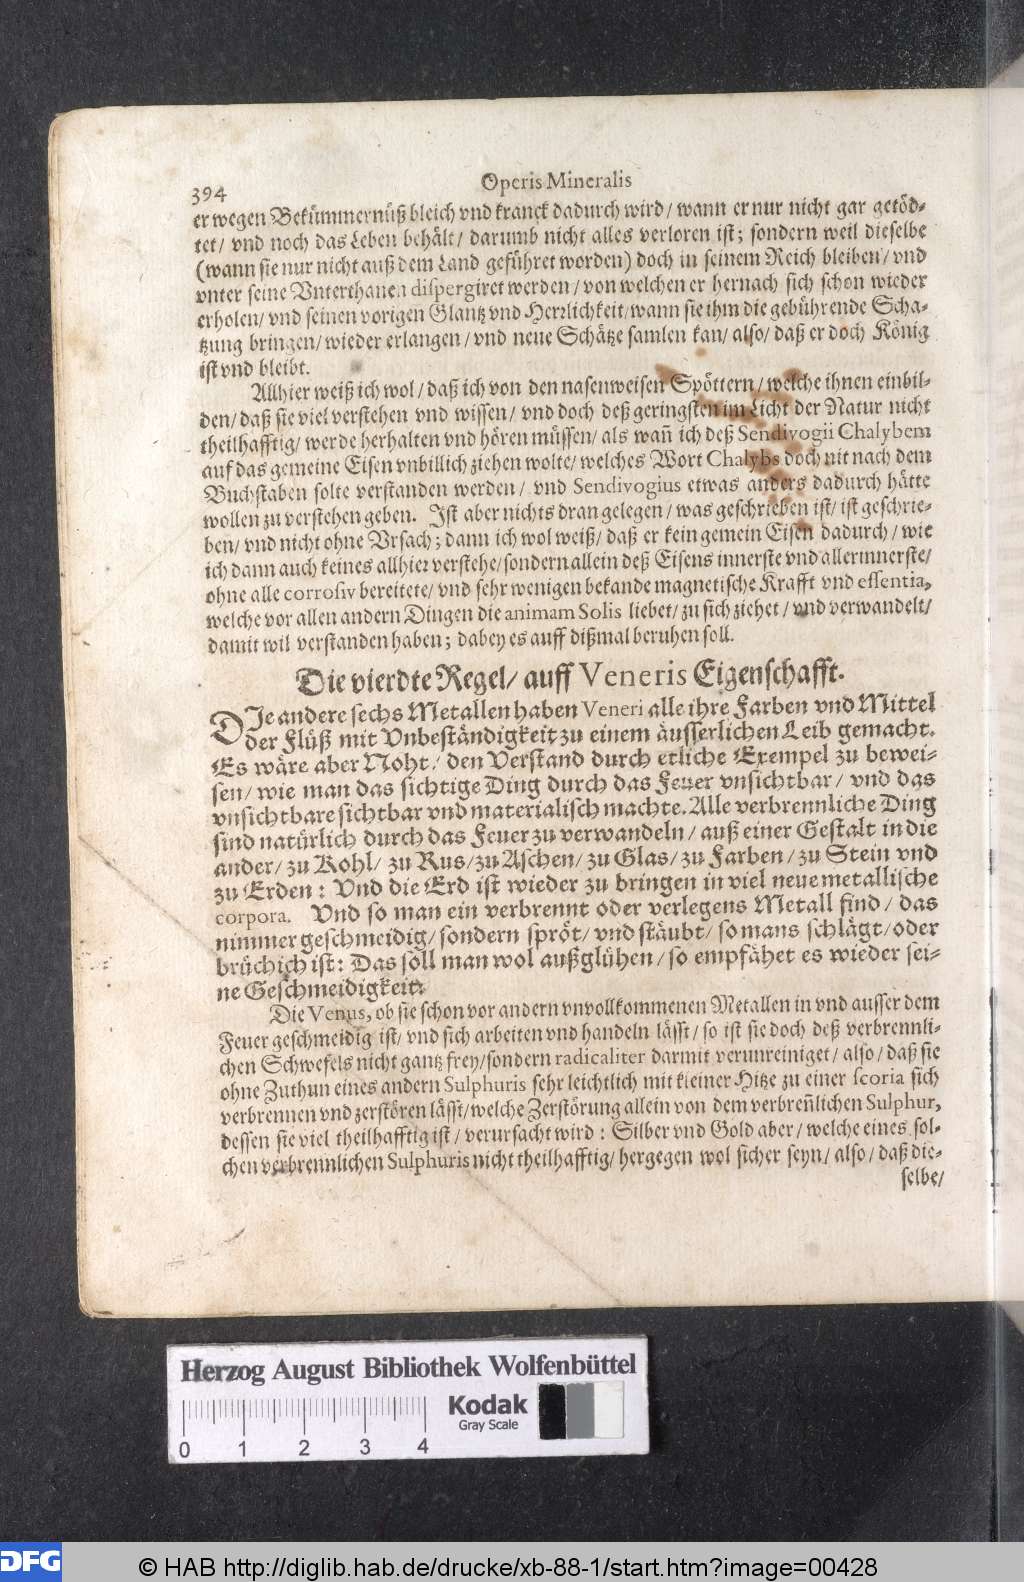 394
Operis Mineralis
er wegen Bekümmernüß bleich vnd kranck dadurch wird/ wann er nur nicht gar getöd-
tet/ vnd noch das Leben behält/ darumb nicht alles verloren ist; sondern weil dieselbe
(wann sie nur nicht auß dem Land geführet worden) doch in seinem Reich bleiben/ vnd
vnter seine Vnterthanen dispergiret werden/ von welchen er hernach sich schon wieder
erholen/ vnd seinen vorigen Glantz vnd Herzlichkeit/ wann sie ihm die gebührende Scha-
tzung bringen/ wieder erlangen/ vnd neue Schätze samlen kan/ also/ daß er doch König
ist vnd bleibt.
Allhier weiß ich wol/ daß ich von den nasenweisen Spöttern/ welche ihnen einbil-
den/ daß sie viel verstehen vnd wissen/ vnd doch deß geringsten im Licht der Natur nicht
theilhafftig/ werde herhalten vnd hören müssen/ als wañ ich deß Sendivogii Chalybem
auf das gemeine Eisen vnbillich ziehen wolte/ welches Wort Chalybs doch nit nach dem
Buchstaben solte verstanden werden/ vnd Sendivogius etwas anders dadurch hätte
wollen zu verstehen geben. Ist aber nichts dran gelegen/ was geschrieben ist/ ist geschrie-
ben/ vnd nicht ohne Vrsach; dann ich wol weiß/ daß er kein gemein Eisen dadurch/ wie
ich dann auch keines allhier verstehe/ sondern allein deß Eisens innerste vnd allerinnerste/
ohne alle corrosiv bereitete/ vnd sehr wenigen bekande magnetische Krafft vnd essentia,
welche vor allen andern Dingen die animam Solis liebet/ zu sich ziehet/ vnd verwandelt/
damit wil verstanden haben; dabey es auff dißmal beruhen soll.
Die vierdte Regel/ auff Veneris Eigenschafft.
DIe andere sechs Metallen haben Veneri alle ihre Farben vnd Mittel
der Flüß mit Vnbeständigkeit zu einem äusserlichen Leib gemacht.
Es wäre aber Noht/ den Verstand durch etliche Exempel zu bewei-
sen/ wie man das sichtige Ding durch das Feuer vnsichtbar/ vnd das
vnsichtbare sichtbar vnd materialisch machte. Alle verbrennliche Ding
sind natürlich durch das Feuer zu verwandeln/ auß einer Gestalt in die
ander/ zu Kohl/ zu Rus/ zu Aschen/ zu Glas/ zu Farben/ zu Stein vnd
zu Erden: Vnd die Erd ist wieder zu bringen in viel neue metallische
corpora. Vnd so man ein verbrennt oder verlegens Metall find/ das
nimmer geschmeidig/ sondern spröt/ vnd stäubt/ so mans schlägt/ oder
brüchich ist: Das soll man wol außglühen/ so empfähet es wieder sei-
ne Geschmeidigkeit.
Die Venus, ob sie schon vor andern vnvollkommenen Metallen in vnd ausser dem
Feuer geschmeidig ist/ vnd sich arbeiten vnd handeln lässt/ so ist sie doch deß verbrennli-
chen Schwefels nicht gantz frey/ sondern radicaliter darmit verunreiniget/ also/ daß sie
ohne Zuthun eines andern Sulphuris sehr leichtlich mit kleiner Hitze zu einer scoria sich
verbrennen vnd zerstören lässt/ welche Zerstörung allein von dem verbreñlichen Sulphur,
dessen sie viel theilhafftig ist/ verursacht wird: Silber vnd Gold aber/ welche eines sol-
chen verbrennlichen Sulphuris nicht theilhafftig/ hergegen wol sicher seyn/ also/ daß die-
selbe/
Herzog August Bibliothek Wolfenbüttel
Kodak
Gray Scale
0 1 2 3 4
DFG
© HAB http://diglib.hab.de/drucke/xb-88-1/start.htm?image=00428